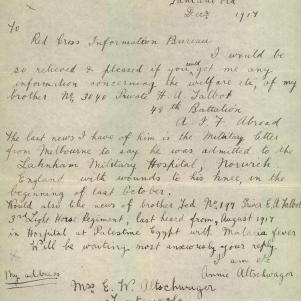 Dec 1917
To
Red Cross Information Bureau
I would be
so relieved & pleased if you would get me any
information concerning the welfare etc, of my
brother No 3040 Private H. A. Talbot
48th Battalion
A. I. F. Abroad
The last news I have of him is the Military letter
from Melbourne to say he was admitted to the
Lakenham Military Hospital, Norwich
England with wounds to his knee, in the
beginning of last October.
Would also like news of brother Ted No 197 Driver E. A. Talbot
3rd Light Horse Regiment, last heard from, August 1917
in Hospital at Palestine Egypt with Malaria fever
Will be waiting most anxiously your reply.
I am etc
Annie Altschwager
My address
Mrs E. W. Altschwager